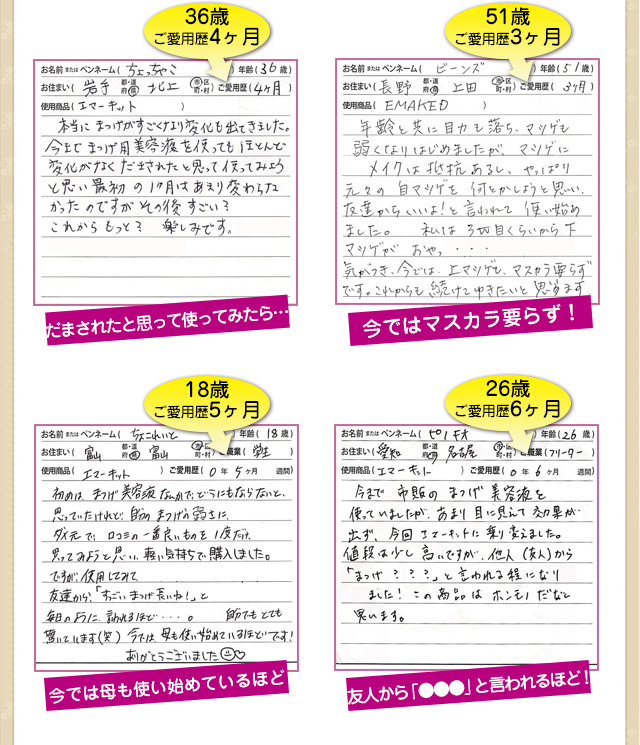 36歳
ご愛用歴4ヶ月
お名前またはペンネーム(ちょっちゃこ 年齢(36歳)
お住まい(岩手 都・道府・県 北上 市・区町・村)ご愛用歴(4ヶ月)
使用商品(エマーキット )
本当にまつげがすごくなり変化も出てきました。
今までまつげ用美容液を使ってもほとんど
変化がなくだまされたと思って使ってみよう
と思い最初の1ヶ月はあまり変わらな
かったのですがその後すごい?
これからもっと? 楽しみです。
だまされたと思って使ってみたら…
51歳
ご愛用歴3ヶ月
お名前またはペンネーム( ビーンズ 年齢(51歳)
お住まい(長野 都・道府・県 上田 市・区町・村)ご愛用歴( 3ヶ月)
使用商品( EMAKED )
年齢と共に目力も落ち、マツゲも
弱くなりはじめましたが、マツゲに
メイクは抵抗あるし、やっぱり
元々の自マツゲを何とかしようと思い、
友達からいいよ!と言われて使い始め
ました。 私は3切目くらいから下
マツゲが おやっ・・・
気がつき、今では、上マツゲも、マスカラ要らず
です。これからも続けてゆきたいと思います
今ではマスカラ要らず!
18歳
ご愛用歴5ヶ月
お名前またはペンネーム(ちょこれいと 年齢(18歳)
お住まい(富山 都・道府・県 富山 市・区町・村)ご職業( 学生
使用商品( エマーキット )ご愛用歴( 0年 5ヶ月 週間)
初めは、まつげ美容液なんかで、どうにもならないと、
思っていたけれど、自分のまつげの弱さに、
ダメ元で、口コミの一番良いものを1度だけ、
買ってみようと思い、軽い気持ちで購入しました。
ですが、使用してみて、
友達から、「すっごいまつげ長いね!」と
毎日のように、言われるほど・・・。 自分でもとても
驚いています(笑) 今では、母も使い始めているほどです!
ありがとうございました♡
今では母も使い始めているほど
26歳
ご愛用歴6ヶ月
お名前またはペンネーム( ピノキオ 年齢(26歳)
お住まい(愛知 都・道府・県 名古屋 市・区町・村)ご職業(フリーター)
使用商品(エマーキット )ご愛用歴( 0年 6ヶ月 週間)
今まで市販のまつげ美容液を
使っていましたが、あまり目に見えて効果が
出ず、今回エマーキットに乗り変えました。
値段は少し高いですが、他人(友人)から
「まつげ???」と言われる程になり
ました!この商品はホンモノだなと
思います。
友人から「●●●」と言われるほど!